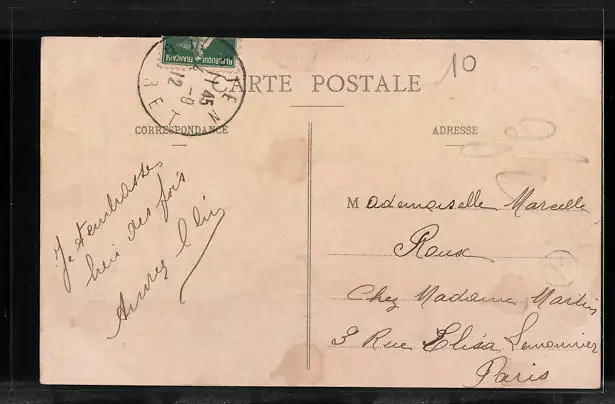 RÉPUBLIQUE FRANÇAISE
12 -9
45
10
CARTE POSTALE
CORRESPONDANCE
ADRESSE
Je t'embrasse
bien des fois
Mademoiselle Marcelle
Roux
Chez Madame Martin
3 Rue Elisa Lemonnier
Paris